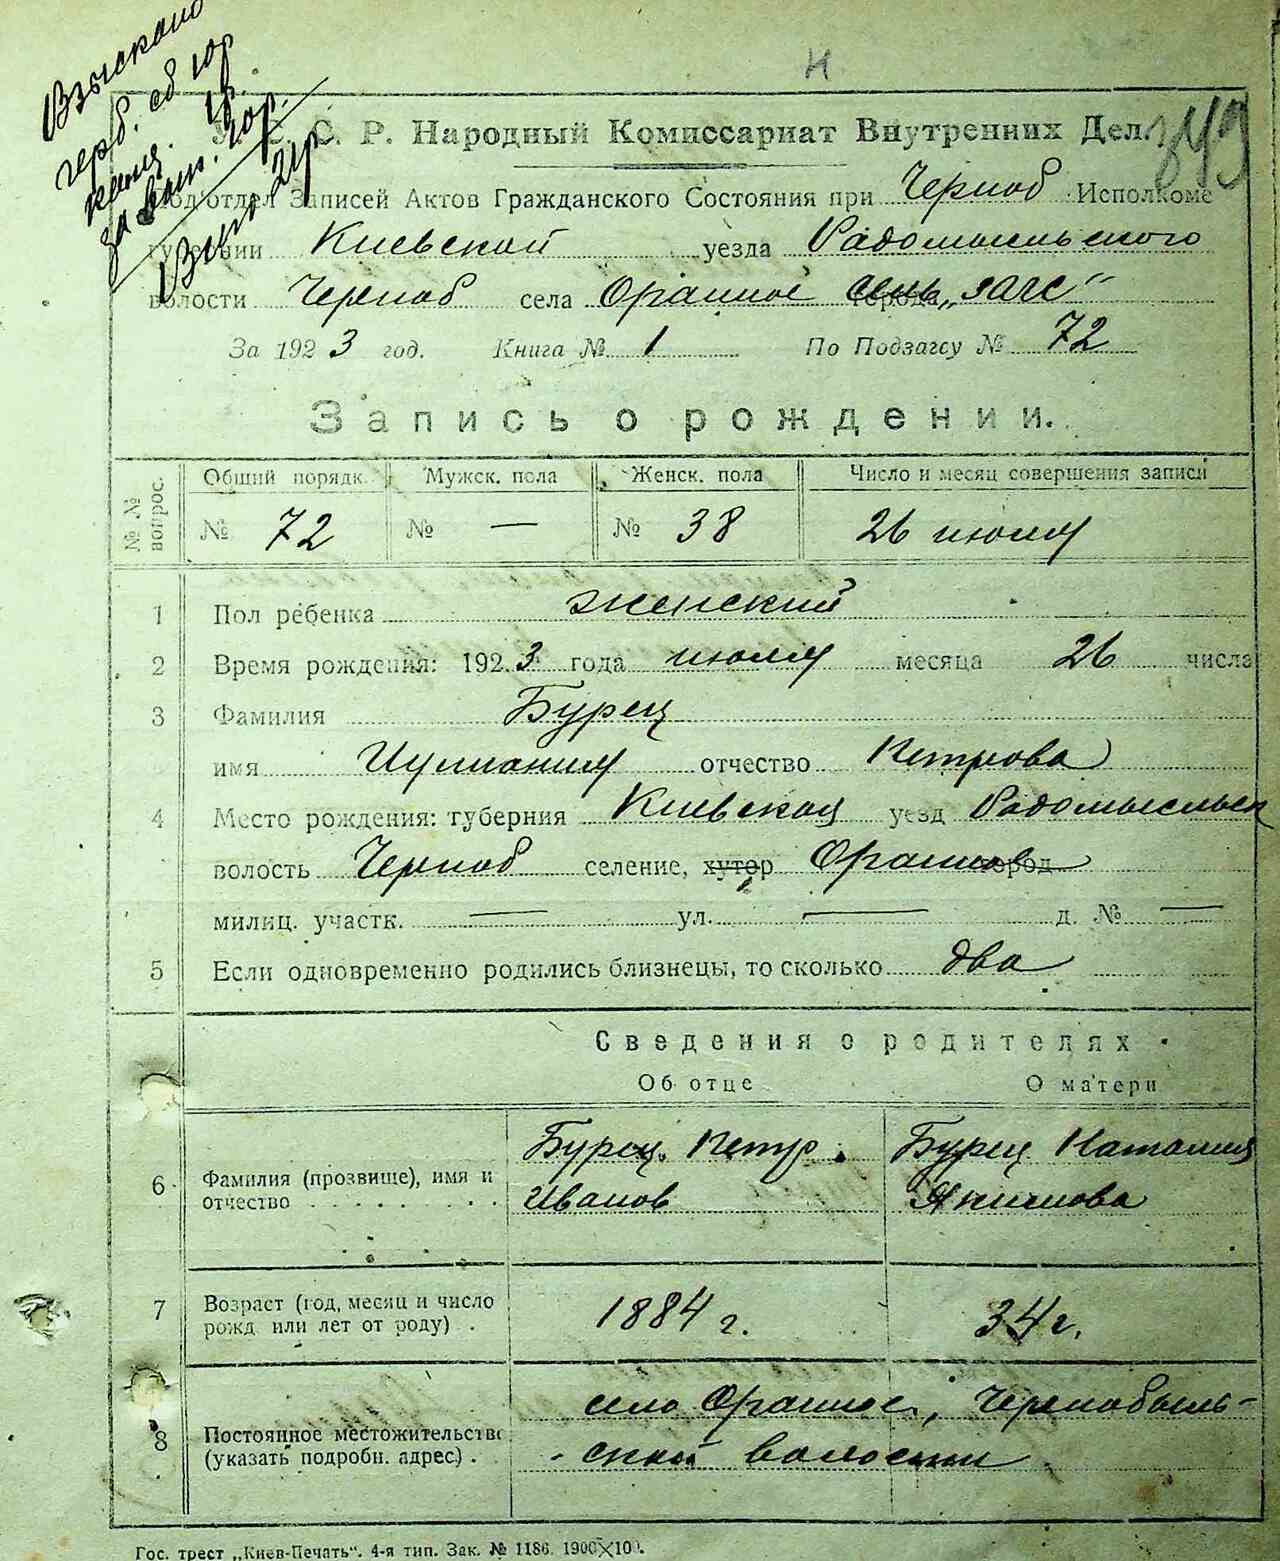 Взыскано
герб. сб 10р
канц. 1р.
за бланк. 10р.
Всего 21р
н
У. С. С. Р. Народный Комиссариат Внутренних Дел.
849
Подотдел Записей Актов Гражданского Состояния при Черноб Исполкоме
губернии Киевской уезда Радомысльского
волости Черноб села Оранное города „загс“
За 1923 год. Книга № 1 По Подзагсу № 72
Запись о рождении.
№ № вопрос. Общий порядк. Мужск. пола Женск. пола Число и месяц совершения записи
№ 72 № — № 38 26 июля
1 Пол ребенка женский
2 Время рождения: 1923 года июля месяца 26 числа
3 Фамилия Бурец
имя Иулиания отчество Петрова
4 Место рождения: губерния Киевская уезд Радомысльск
волость Черноб селение, хутор Оранное город
милиц. участк. — ул. — д. № —
5 Если одновременно родились близнецы, то сколько два
Сведения о родителях
Об отце О матери
6 Фамилия (прозвище), имя и отчество Бурец Петр Иванов Бурец Наталия Якимова
7 Возраст (год, месяц и число рожд или лет от роду) 1884 г. 34 г.
8 Постоянное местожительство (указать подробн. адрес) село Оранное, Чернобыль-
ской волости
Гос. трест „Киев-Печать“. 4-я тип. Зак. № 1186. 1900×100.